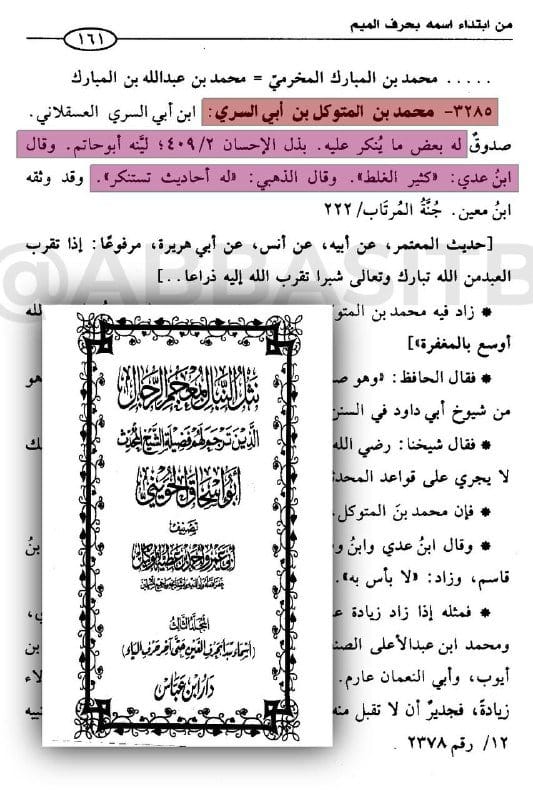 من ابتداء اسمه بحرف الميم
١٦١
..... محمد بن المبارك المخرميّ = محمد بن عبدالله بن المبارك
٣٢٨٥- محمد بن المتوكل بن أبي السري: ابن أبي السري العسقلاني.
صدوقٌ له بعض ما يُنكر عليه. بذل الإحسان ٤٠٩/٢؛ ليَّنه أبوحاتم. وقال
ابنُ عدي: «كثير الغلط». وقال الذهبي: «له أحاديث تستنكر». وقد وثقه
ابنُ معين. جُنَّةُ المُرتَاب/ ٢٢٢
[حديث المعتمر، عن أبيه، عن أنس، عن أبي هريرة، مرفوعًا: إذا تقرب
العبدمن الله تبارك وتعالى شبرا تقرب الله إليه ذراعا..]
* زاد فيه محمد بن المتوكل
الله
أوسع بالمغفرة»]
* فقال الحافظ: «وهو
وهو
من شيوخ أبي داود في السنن
* فقال شيخنا: رضي الله
لا يجري على قواعد المحدثين
* فإن محمد بنَ المتوكل
* وقال ابنُ عدي وابنُ
ابنُ
قاسم، وزاد: «لا بأس به».
* فمثله إذا زاد زيادة
ومحمد ابن عبدالأعلى
أيوب، وأبي النعمان عارم.
زيادةً، فجديرٌ أن لا تقبل منه
١٢/ رقم ٢٣٧٨
نثل النبال بمعجم الرجال
الذين ترجم لهم فضيلة الشيخ المحدث
أبو إسحاق الحويني
تصنيف
المجلد الثالث
دار ابن عباس
@ABBASITB